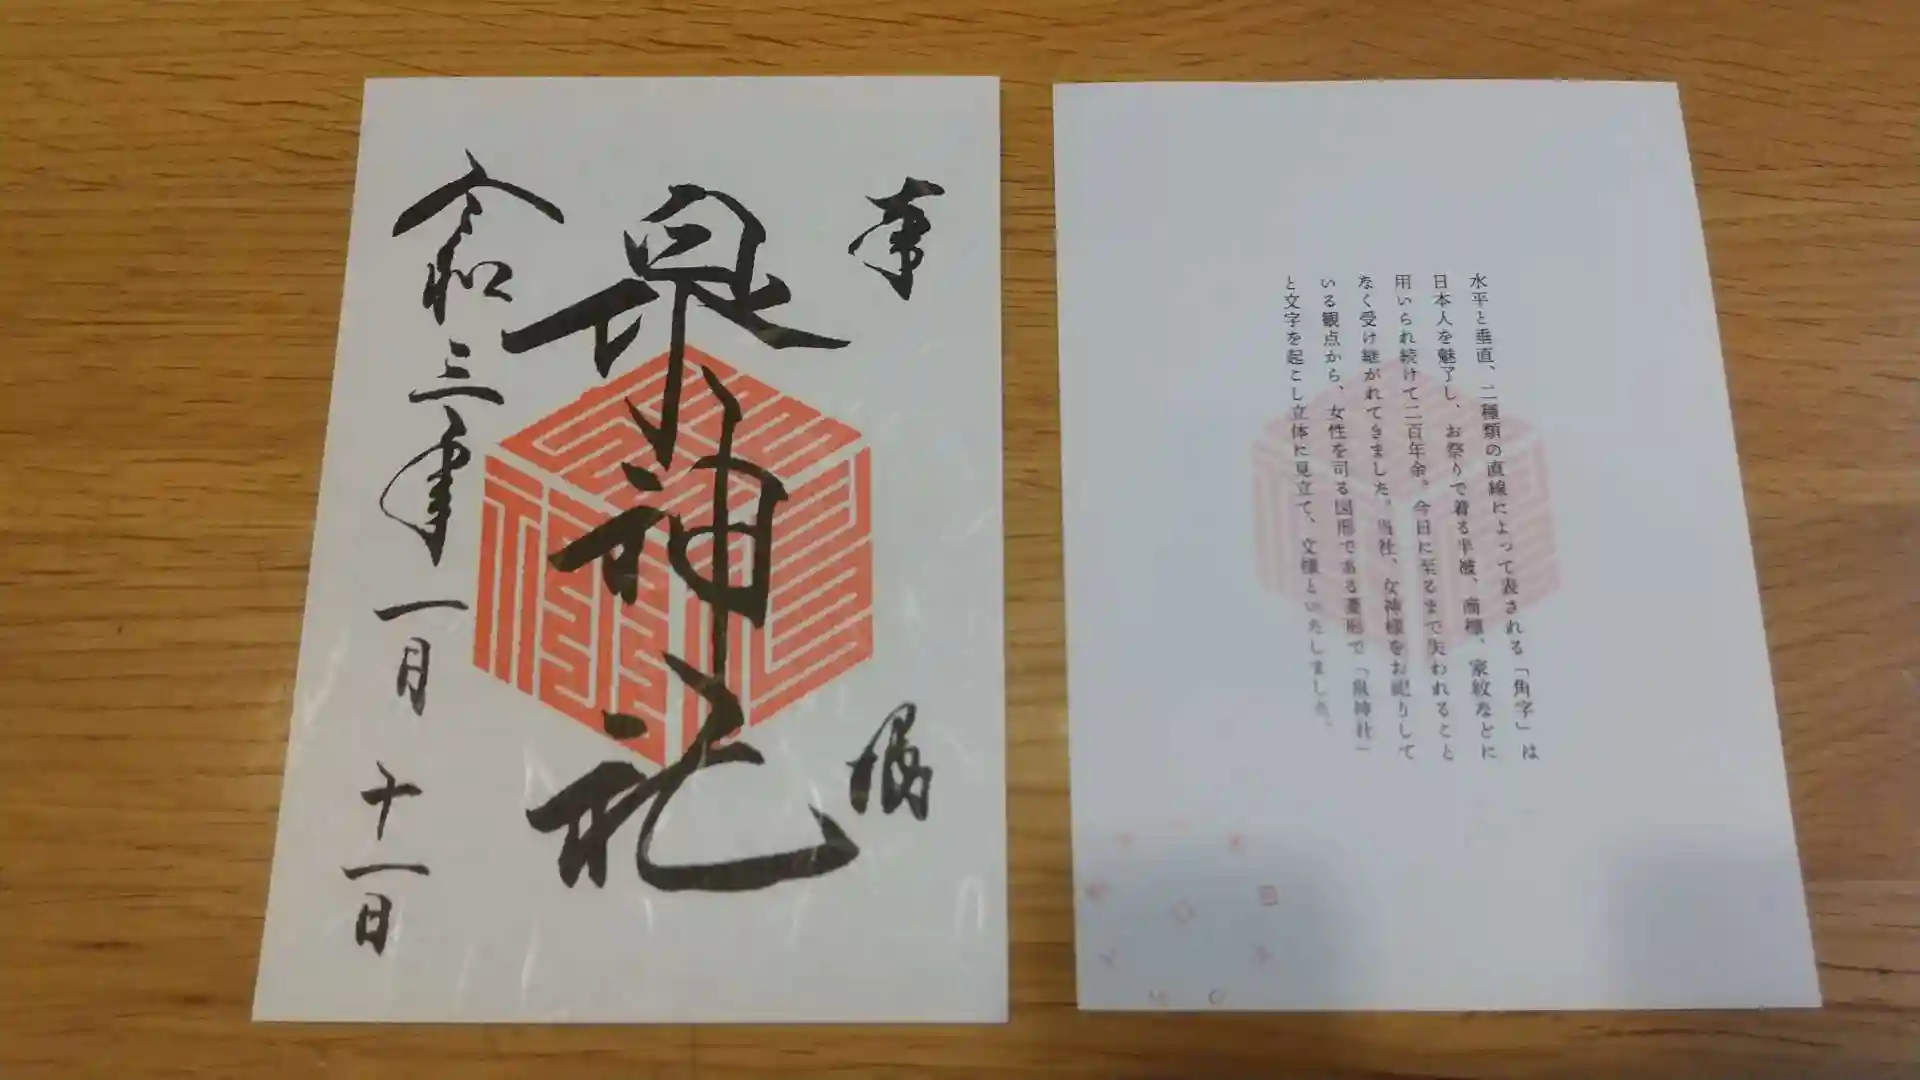 奉
拝
泉神社
令和三年一月十一日
水平と垂直、二種類の直線によって表される「角字」は
日本人を魅了し、お祭りで着る半被、前棚、家紋などに
用いられ続けて二百年余。今日に至るまで失われること
なく受け継がれてきました。当社、女神様をお祀りして
いる観点から、女性を司る図形である菱形で「泉神社」
と文字を起こし立体に見立て、文様といたしました。